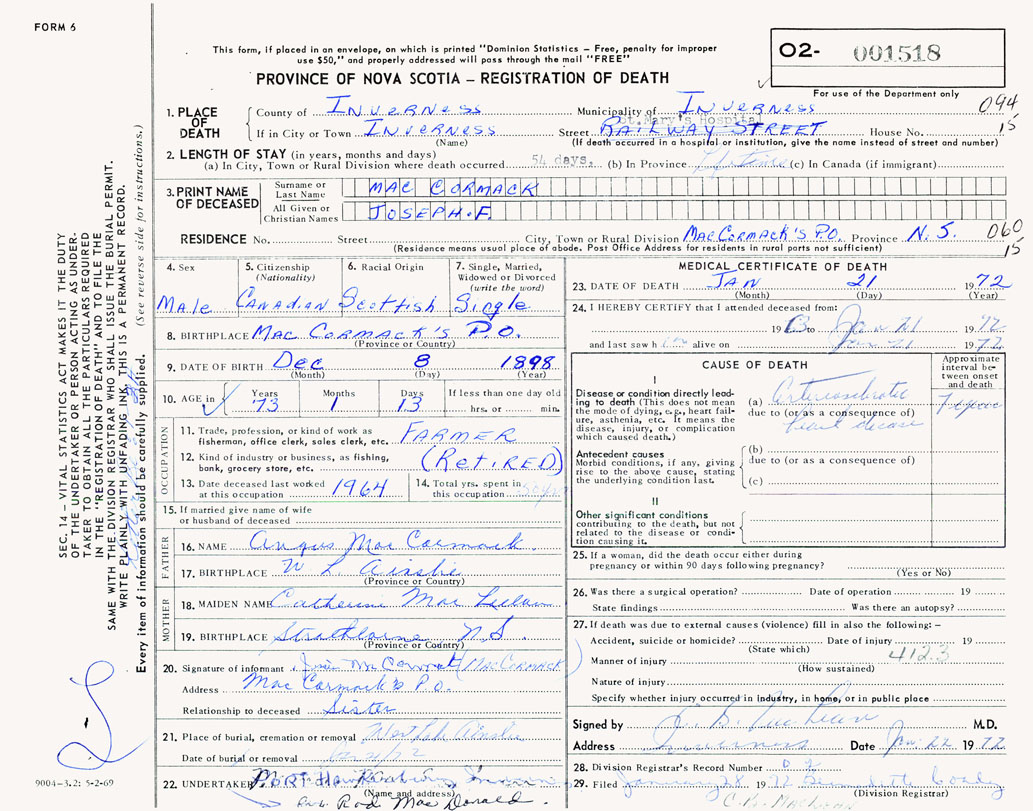 FORM 6
This form, if placed in an envelope, on which is printed "Dominion Statistics – Free, penalty for improper
use $50," and properly addressed will pass through the mail "FREE"
PROVINCE OF NOVA SCOTIA – REGISTRATION OF DEATH
O2- 001518
For use of the Department only
094
15
1. PLACE OF DEATH
County of INVERNESS Municipality of INVERNESS
St. Mary's Hospital
If in City or Town INVERNESS Street RAILWAY STREET House No.
(Name) (If death occurred in a hospital or institution, give the name instead of street and number)
2. LENGTH OF STAY (in years, months and days)
(a) In City, Town or Rural Division where death occurred 54 days. (b) In Province Lifetime (c) In Canada (if immigrant)
3. PRINT NAME OF DECEASED
Surname or Last Name MAC CORMACK
All Given or Christian Names JOSEPH.F.
RESIDENCE No. Street City, Town or Rural Division MacCormack's P.O. Province N.S.
060
15
(Residence means usual place of abode. Post Office Address for residents in rural parts not sufficient)
4. Sex
Male
5. Citizenship (Nationality)
Canadian
6. Racial Origin
Scottish
7. Single, Married, Widowed or Divorced (write the word)
Single
8. BIRTHPLACE Mac Cormack's P.O.
(Province or Country)
9. DATE OF BIRTH Dec 8 1898
(Month) (Day) (Year)
10. AGE in Years 73 Months 1 Days 13 If less than one day old hrs. or min.
OCCUPATION
11. Trade, profession, or kind of work as fisherman, office clerk, sales clerk, etc. FARMER
12. Kind of industry or business, as fishing, bank, grocery store, etc. (RETIRED)
13. Date deceased last worked at this occupation 1964
14. Total yrs. spent in this occupation
15. If married give name of wife or husband of deceased
FATHER
16. NAME Angus Mac Cormack
17. BIRTHPLACE W L Ainslie
(Province or Country)
MOTHER
18. MAIDEN NAME Catherine Mac
19. BIRTHPLACE Strathlorne N.S.
(Province or Country)
20. Signature of informant (MACCORMACK)
Address Mac Cormack's P.O.
Relationship to deceased Sister
21. Place of burial, cremation or removal West Lake Ainslie
Date of burial or removal
22. UNDERTAKER Port Hawkesbury
(Name and address)
Rod Mac Donald.
MEDICAL CERTIFICATE OF DEATH
23. DATE OF DEATH JAN 21 1972
(Month) (Day) (Year)
24. I HEREBY CERTIFY that I attended deceased from:
19 to Jan 21 1972
and last saw h im alive on Jan 21 1972
CAUSE OF DEATH
Approximate interval between onset and death
I
Disease or condition directly leading to death (This does not mean the mode of dying, e.g., heart failure, asthenia, etc. It means the disease, injury, or complication which caused death.)
(a) Arteriosclerotic
due to (or as a consequence of)
heart disease
7 years
Antecedent causes
Morbid conditions, if any, giving rise to the above cause, stating the underlying condition last.
(b)
due to (or as a consequence of)
(c)
II
Other significant conditions
contributing to the death, but not related to the disease or condition causing it.
25. If a woman, did the death occur either during pregnancy or within 90 days following pregnancy?
(Yes or No)
26. Was there a surgical operation? Date of operation 19
State findings Was there an autopsy?
27. If death was due to external causes (violence) fill in also the following: –
Accident, suicide or homicide? Date of injury 19
(State which) 412.3
Manner of injury
(How sustained)
Nature of injury
Specify whether injury occurred in industry, in home, or in public place
Signed by M.D.
Address Inverness Date Jan. 22 1972
28. Division Registrar's Record Number
29. Filed January 28 1972
(Division Registrar)
SEC. 14 – VITAL STATISTICS ACT MAKES IT THE DUTY
OF THE UNDERTAKER OR PERSON ACTING AS UNDER-
TAKER TO OBTAIN ALL THE PARTICULARS REQUIRED
IN THE "REGISTRATION OF DEATH" AND TO FILE THE
SAME WITH THE DIVISION REGISTRAR WHO SHALL ISSUE THE BURIAL PERMIT.
WRITE PLAINLY WITH UNFADING INK, THIS IS A PERMANENT RECORD.
Every item of information should be carefully supplied. (See reverse side for instructions.)
9004-3.2: 5-2-69